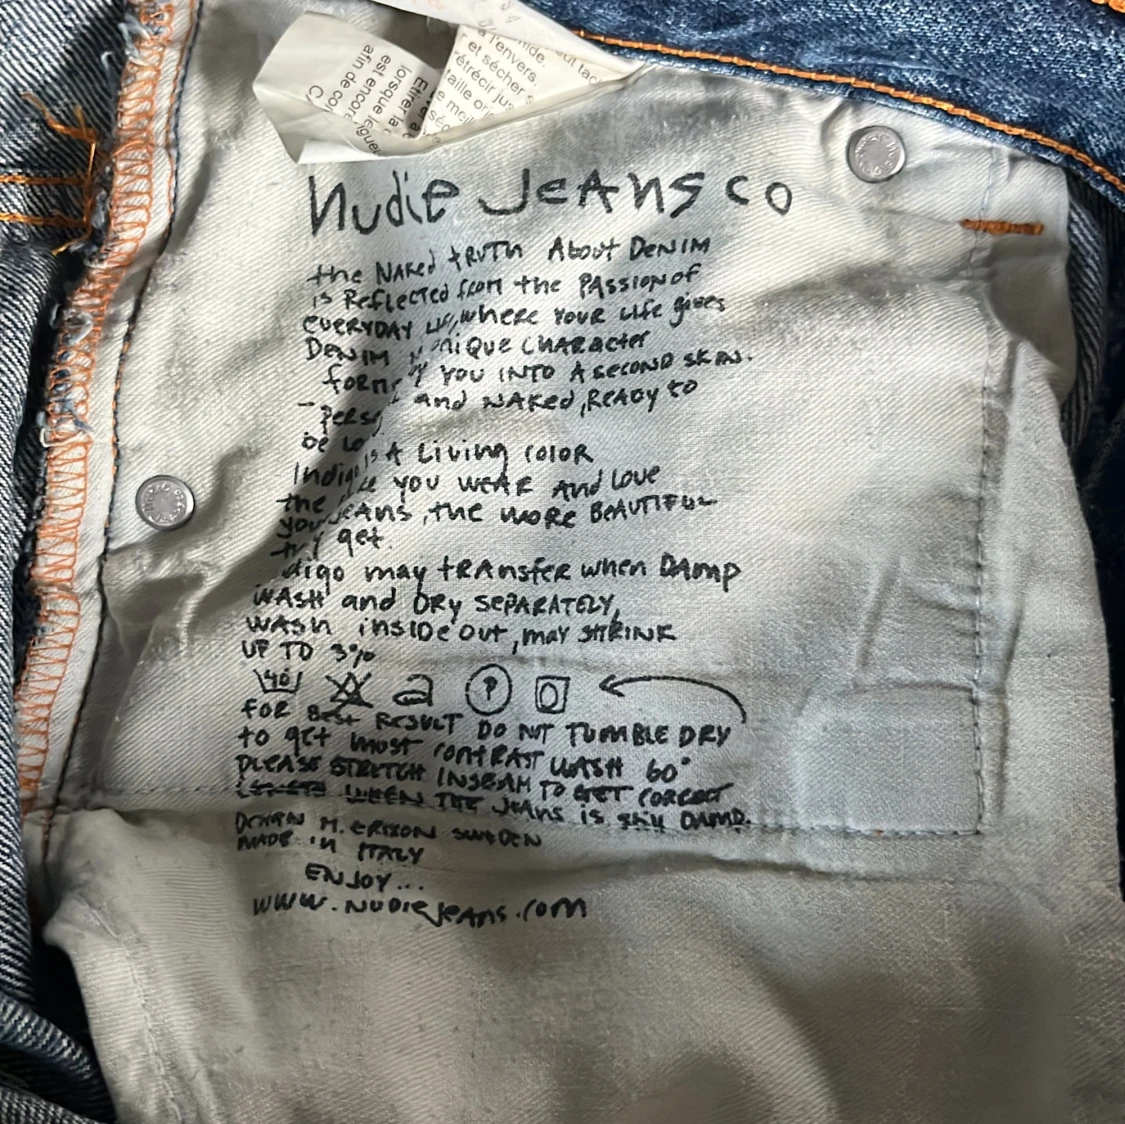 à l'envers
et sécher s
rétrécir jus
lorsque
est enco
afin de co
Nudie Jeans co
the NAKed tRUTH About DENIM
is Reflected from the PASSION of
EVERYDAY where YOUR Life gives
DENIM CHARActer
YOU INTO A SECOND SKIN.
and NAKed, READY to
be
A Living COLOR
YOU WEAR AND Love
the more BEAUTIFUL
get.
may tRANsfer when DAMP
WASH and DRY SEPARATELY,
WASH inside out, may SHRINK
UP TO 3%
40
P
FOR BEst RESULT DO NOT TUMBLE DRY
to get most CONTRAST WASH 60°
PLEASE STRETCH INSEAM TO GET CORECT
LENGTH WHEN THE JEANS is still DAMP.
DESIGN M. ERIXON SWEDEN
MADE in ITALY
ENJOY...
WWW.NUDIEJEANS.COM